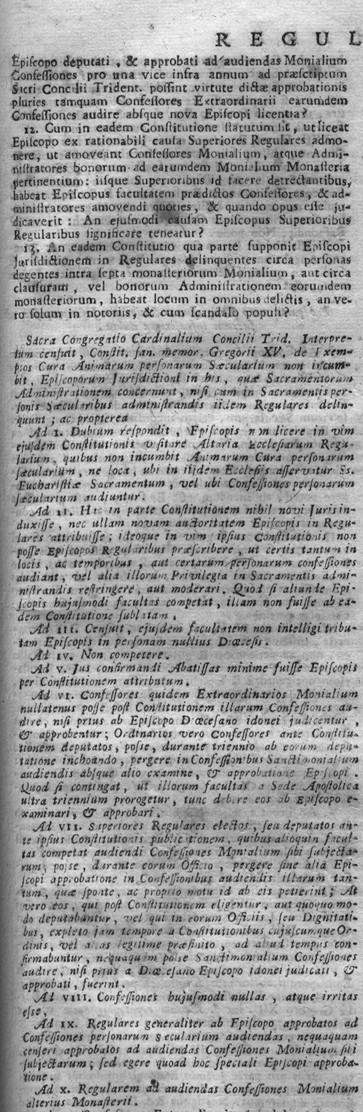 REGUL
Episcopo deputati, & approbati ad audiendas Monialium
Confessiones pro una vice infra annum ad præscriptum
Sacri Concilii Trident. possint virtute dictæ approbationis
pluries tamquam Confessores Extraordinarii earumdem
Confessiones audire absque nova Episcopi licentia?
12. Cum in eadem Constitutione statutum sit, ut liceat
Episcopo ex rationabili causa Superiores Regulares admo-
nere, ut amoveant Confessores Monialium, atque Admi-
nistratores bonorum ad earumdem Monialium Monasteria
pertinentium: iisque Superioribus id facere detrectantibus,
habeat Episcopus facultatem prædictos Confessores, & ad-
ministratores amovendi quoties, & quando opus esse ju-
dicaverit: An ejusmodi causam Episcopus Superioribus
Regularibus significare teneatur?
13. An eadem Constitutio qua parte supponit Episcopi
Jurisdictionem in Regulares delinquentes circa personas
degentes intra septa monasteriorum Monialium, aut circa
clausuram, vel bonorum Administrationem eorumdem
monasteriorum, habeat locum in omnibus delictis, an ve-
ro solum in notoriis, & cum scandalo populi?
Sacra Congregatio Cardinalium Concilii Trid. Interpre-
tum censuit, Constit. san. memor. Gregorii XV. de Exem-
ptos Cura Animarum personarum Sæcularium non incum-
bit, Episcoporum Jurisdictioni in his, quæ Sacramentorum
Administrationem concernunt, nisi cum in Sacramentis per-
sonis Sæcularibus administrandis iidem Regulares delin-
quunt; ac propterea
Ad 1. Dubium respondit, Episcopis non licere in vim
ejusdem Constitutionis visitare Altaria Ecclesiarum Regu-
larium, quibus non incumbit Animarum Cura personarum
sæcularium, ne loca, ubi in iisdem Ecclesiis asservatur Ss.
Eucharistiæ Sacramentum, vel ubi Confessiones personarum
sæcularium audiuntur.
Ad 11. Hac in parte Constitutionem nihil novi Juris in-
duxisse, nec ullam novam auctoritatem Episcopis in Regu-
lares attribuisse; ideoque in vim ipsius Constitutionis non
posse Episcopos Regularibus præscribere, ut certis tantum in
locis, ac temporibus, aut certarum personarum confessiones
audiant, vel alia illorum Privilegia in Sacramentis admi-
nistrandis restringere, aut moderari. Quod si aliunde Epi-
scopis hujusmodi facultas competat, illam non fuisse ab ea-
dem Constitutione sublatam.
Ad III. Censuit, ejusdem facultatem non intelligi tribu-
tam Episcopis in personam nullius Dœcesis.
Ad IV. Non competere.
Ad V. Jus confirmandi Abatissas minime fuisse Episcopis
per Constitutionem attributum.
Ad VI. Confessores quidem Extraordinarios Monialium
nullatenus posse post Constitutionem illarum Confessiones au-
dire, nisi prius ab Episcopo Diœcesano idonei judicentur,
& approbentur; Ordinarios vero Confessores ante Constitu-
tionem deputatos, posse, durante triennio ab eorum depu-
tatione inchoando, pergere in Confessionibus Sanctimonialium
audiendis absque alio examine, & approbatione Episcopi.
Quod si contingat, ut illorum facultas a Sede Apostolica
ultra triennium prorogetur, tunc debere eos ab Episcopo e-
xaminari, & approbari.
Ad VII. Superiores Regulares electos, seu deputatos an-
te ipsius Constitutionis publicationem, quibus alioquin facul-
tas competat audiendi Confessiones Monialium sibi subjecta-
rum, posse, durante eorum Officio, pergere sine alia Epi-
scopi approbatione in Confessionibus audiendis illarum tan-
tum, quæ sponte, ac proprio motu id ab eis petierint; At
vero eos, qui post Constitutionem eligentur, aut quoquo mo-
do deputabuntur, vel qui in eorum Officiis, seu Dignitati-
bus, expleto jam tempore a Constitutionibus cujuscumque Or-
dinis, vel alias legitime præfinito, ad aliud tempus con-
firmabuntur, nequaquam posse Sanctimonialium Confessiones
audire, nisi prius a Diœcesano Episcopo idonei judicati, &
approbati, fuerint.
Ad VIII. Confessiones hujusmodi nullas, atque irritas
esse.
Ad IX. Regulares generaliter ab Episcopo approbatos ad
Confessiones personarum Sæcularium audiendas, nequaquam
censeri approbatos ad audiendas Confessiones Monialium sibi
subjectarum; sed egere quoad hoc speciali Episcopi approba-
tione.
Ad X. Regularem ad audiendas Confessiones Monialium
alterius Monasterii.